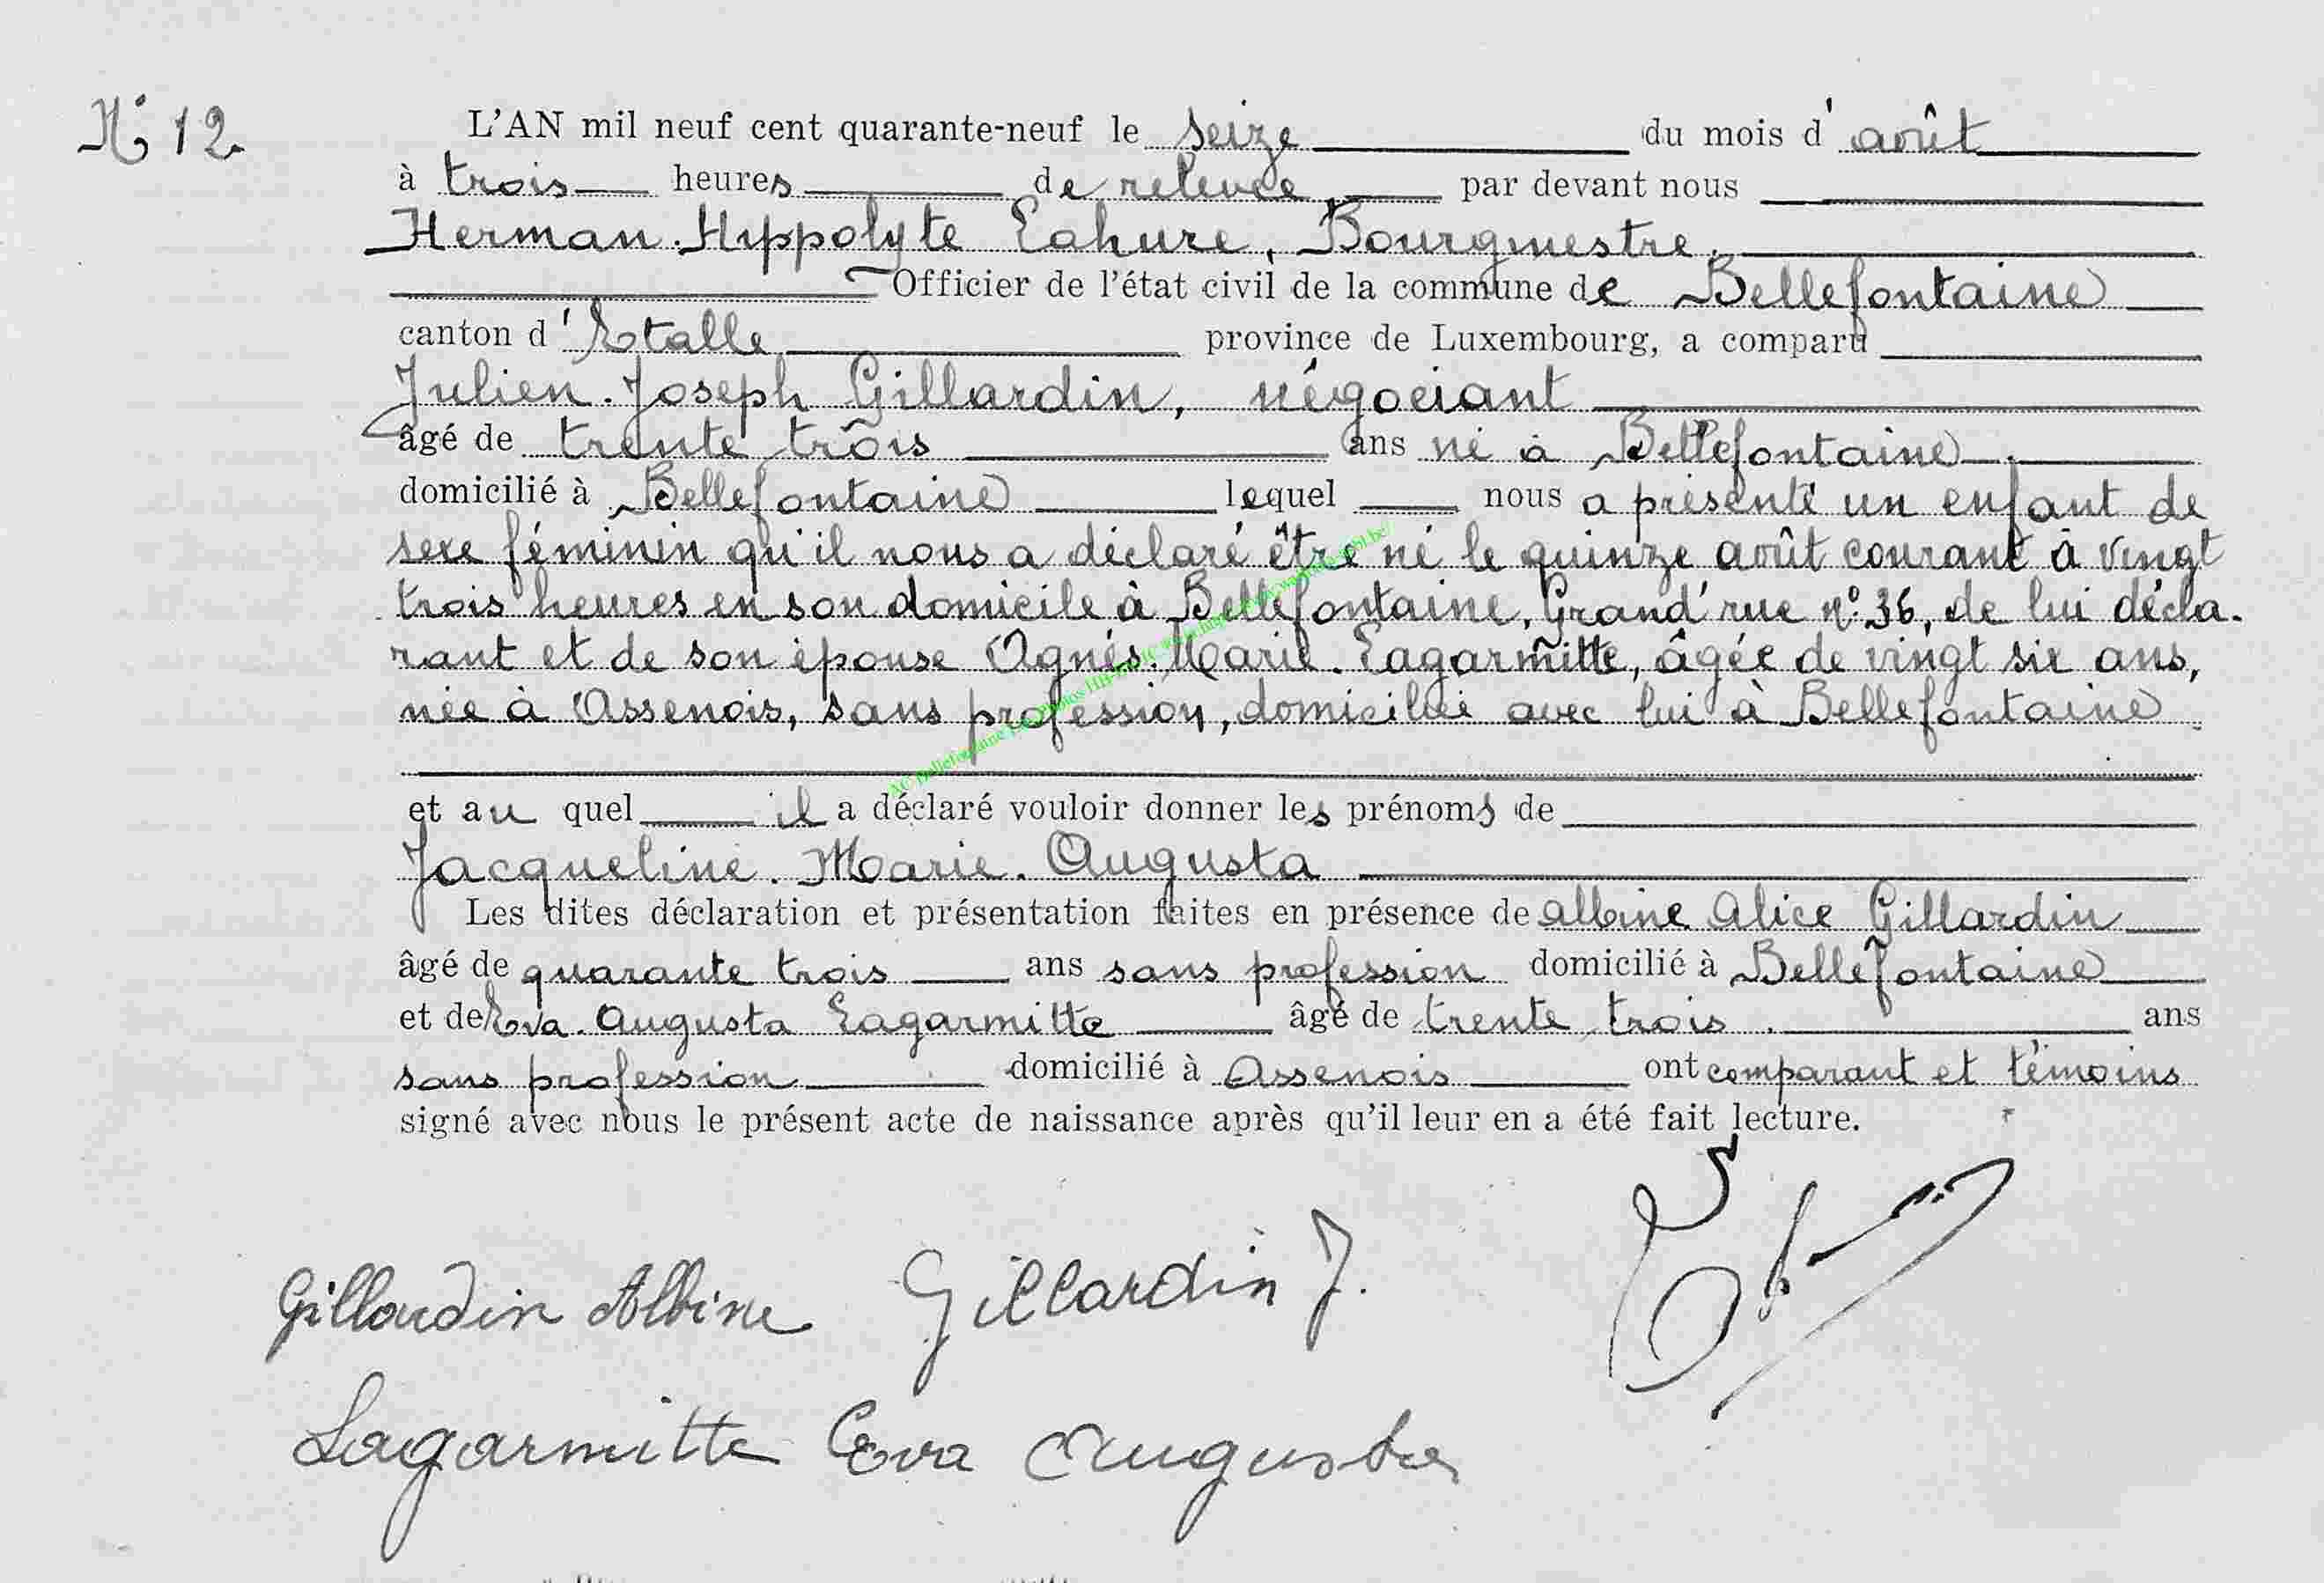 N° 12
L'AN mil neuf cent quarante-neuf le seize du mois d'août
à trois heures de relevée par devant nous
Herman. Hippolyte Lahure, Bourgmestre,
Officier de l'état civil de la commune de Bellefontaine
canton d'Etalle province de Luxembourg, a comparu
Julien. Joseph Gillardin, négociant
âgé de trente trois ans né à Bellefontaine
domicilié à Bellefontaine lequel nous a présenté un enfant de
sexe féminin qu'il nous a déclaré être né le quinze août courant à vingt
trois heures en son domicile à Bellefontaine, Grand'rue n° 36, de lui décla-
rant et de son épouse Agnés. Marie. Lagarmitte, âgée de vingt six ans,
née à Assenois, sans profession, domiciliée avec lui à Bellefontaine
et au quel il a déclaré vouloir donner les prénoms de
Jacqueline. Marie. Augusta
Les dites déclaration et présentation faites en présence de Albine Alice Gillardin
âgé de quarante trois ans sans profession domicilié à Bellefontaine
et de Eva. Augusta Lagarmitte âgé de trente trois ans
sans profession domicilié à Assenois ont comparant et témoins
signé avec nous le présent acte de naissance après qu'il leur en a été fait lecture.
Gillardin Albine Gillardin J.
Lagarmitte Eva Augusta